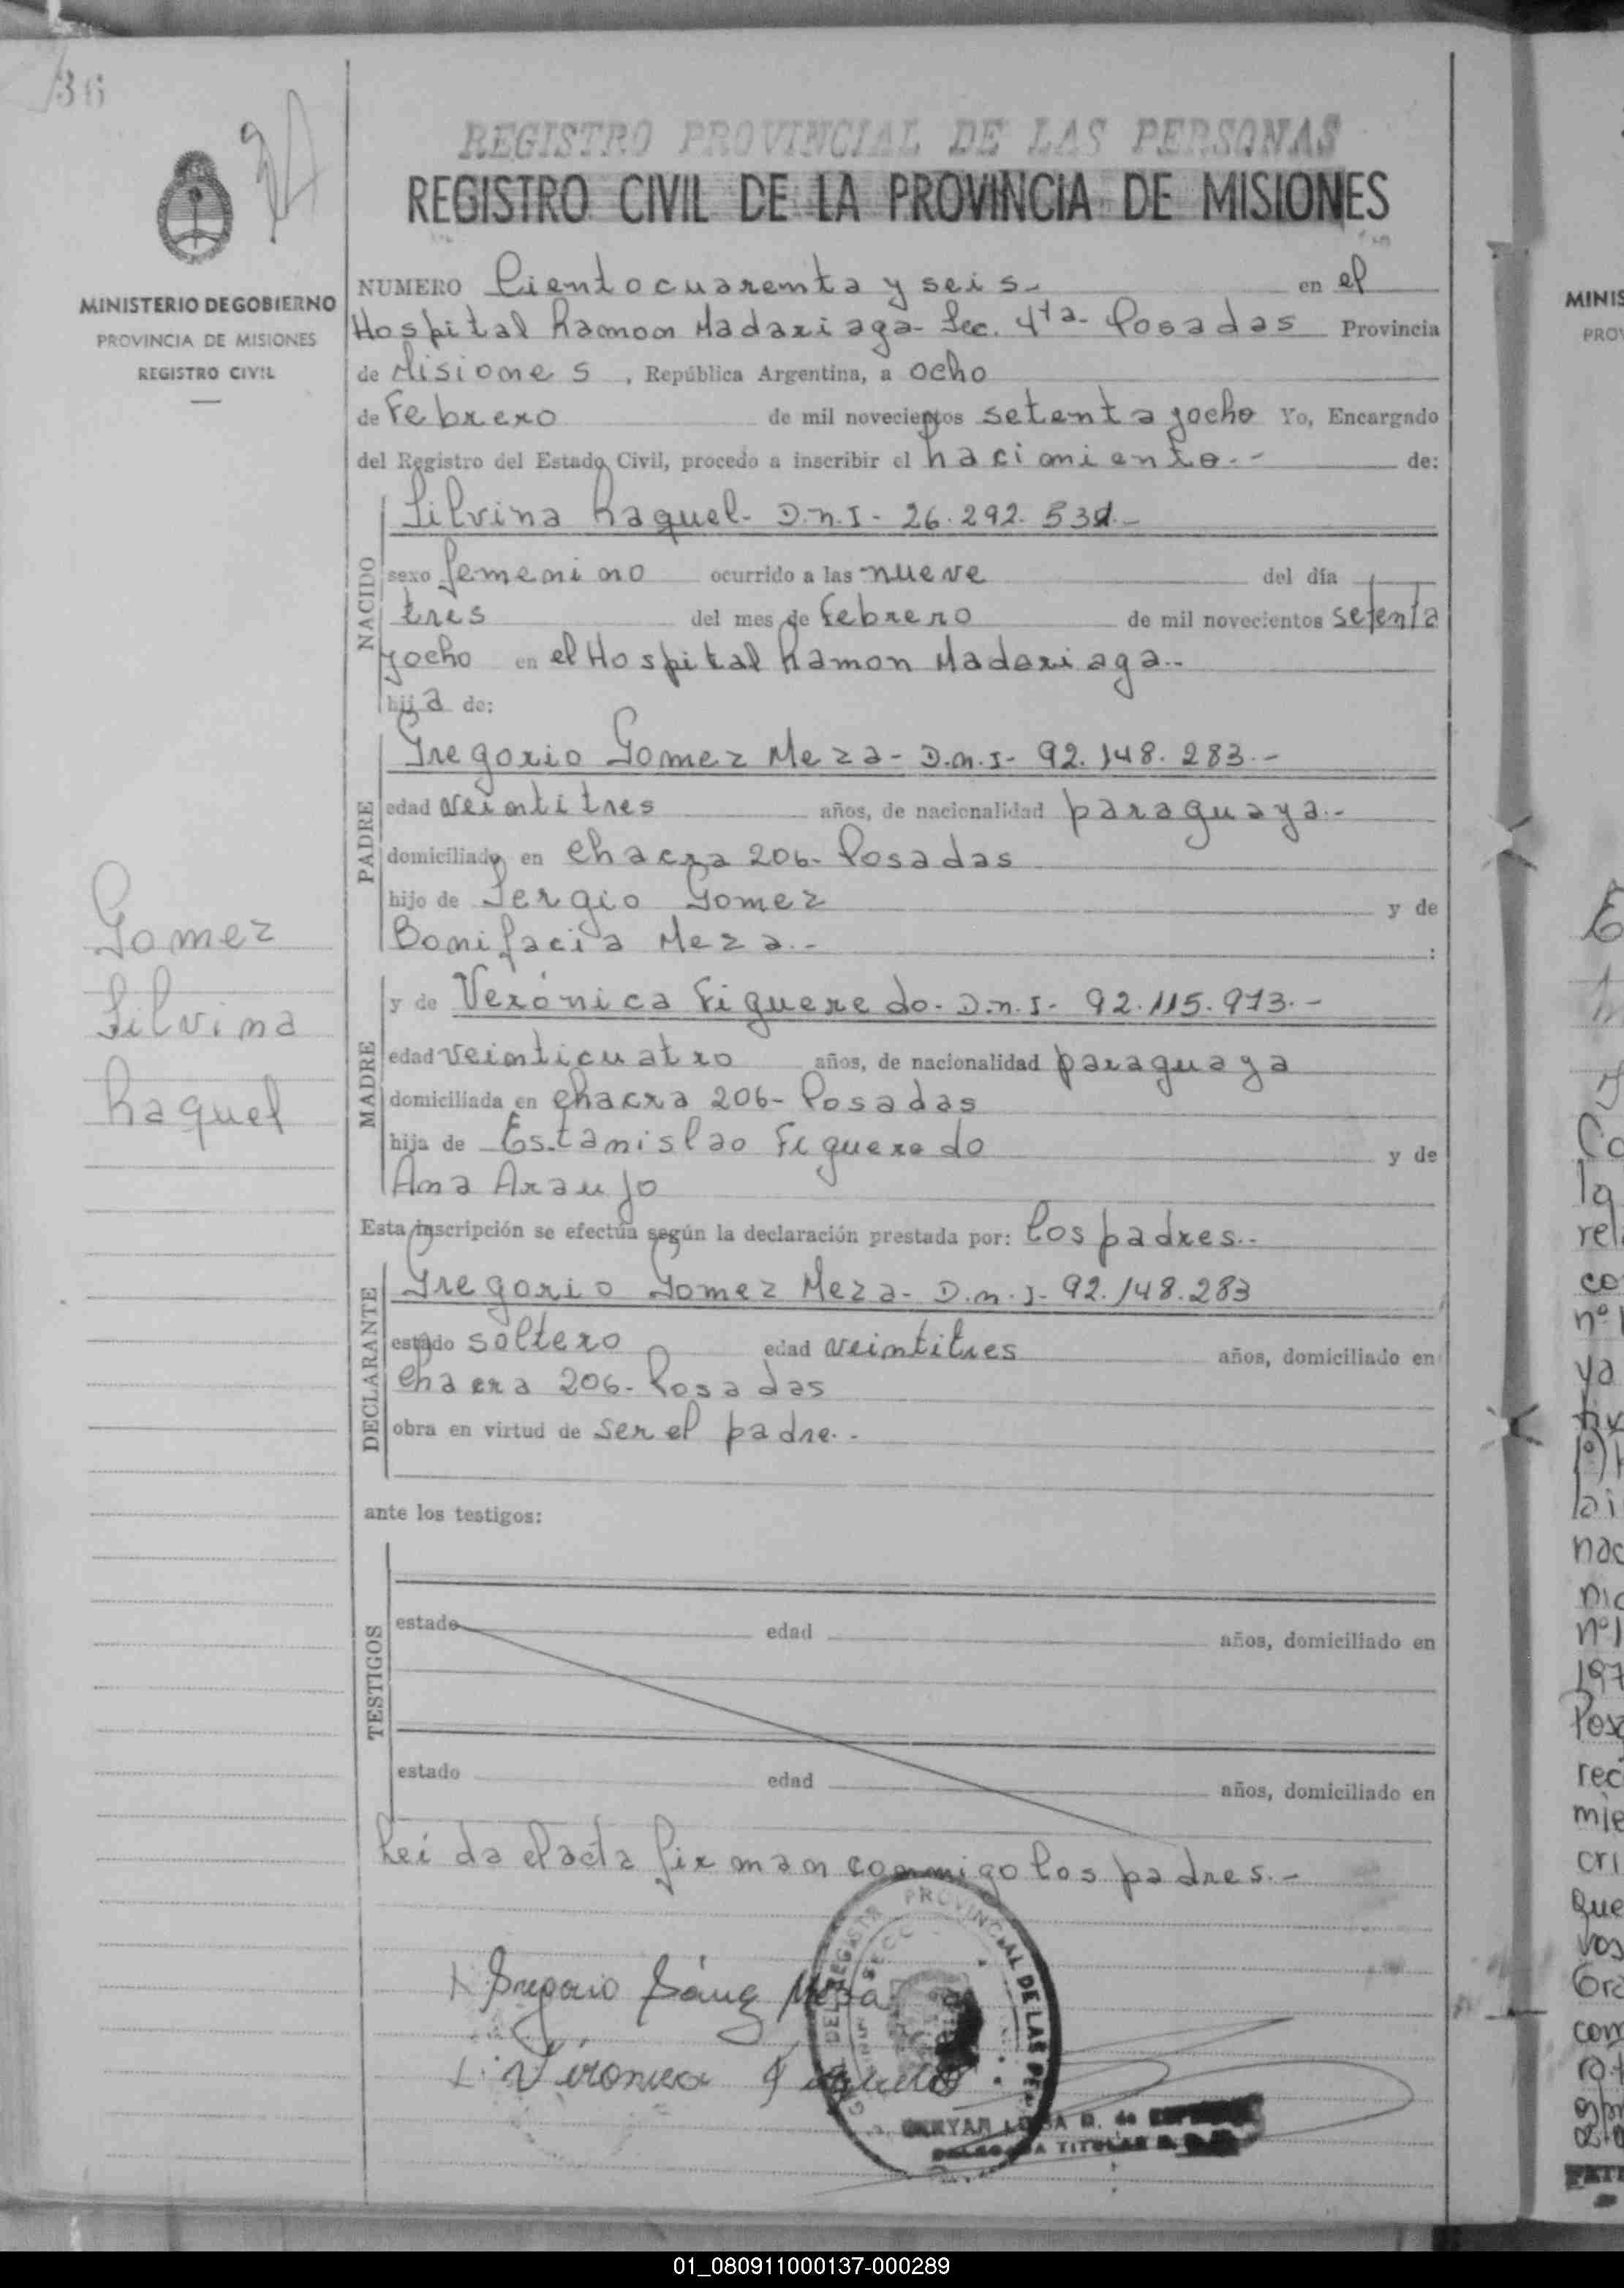 136
REGISTRO PROVINCIAL DE LAS PERSONAS
REGISTRO CIVIL DE LA PROVINCIA DE MISIONES
MINISTERIO DE GOBIERNO
PROVINCIA DE MISIONES
REGISTRO CIVIL
NUMERO Ciento cuarenta y seis.- en el
Hospital Ramon Madariaga- Sec. 4ta- Posadas Provincia
de Misiones, República Argentina, a ocho
de Febrero de mil novecientos setenta y ocho Yo, Encargado
del Registro del Estado Civil, procedo a inscribir el nacimiento.- de:
NACIDO
Silvina Raquel- D.n.I- 26.292.531.-
sexo femenino ocurrido a las nueve del día
tres del mes de Febrero de mil novecientos setenta
y ocho en el Hospital Ramon Madariaga.-
hija de:
PADRE
Gregorio Gomez Meza- D.n.I- 92.148.283.-
edad veintitres años, de nacionalidad paraguaya.-
domiciliado en Chacra 206- Posadas
hijo de Sergio Gomez y de
Bonifacia Meza.- :
Gomez
Silvina
Raquel
MADRE
y de Verónica Figueredo- D.n.I- 92.115.973.-
edad veinticuatro años, de nacionalidad paraguaya
domiciliada en Chacra 206- Posadas
hija de Estanislao Figueredo y de
Ana Araujo
Esta inscripción se efectúa según la declaración prestada por: los padres.-
DECLARANTE
Gregorio Gomez Meza- D.n.I- 92.148.283
estado soltero edad veintitres años, domiciliado en
Chacra 206- Posadas
obra en virtud de ser el padre.-
ante los testigos:
TESTIGOS
estado edad años, domiciliado en
estado edad años, domiciliado en
Leída el acta firman conmigo los padres.-
Gregorio Meza
Veronica
PROVINCIAL DE LAS
TITULAR
MINIS
PROV
Co
la
rel
co
nº1
ya
nac
nº1
197
Pos
rec
mie
cri
que
vos
Gra
com
01_080911000137-000289